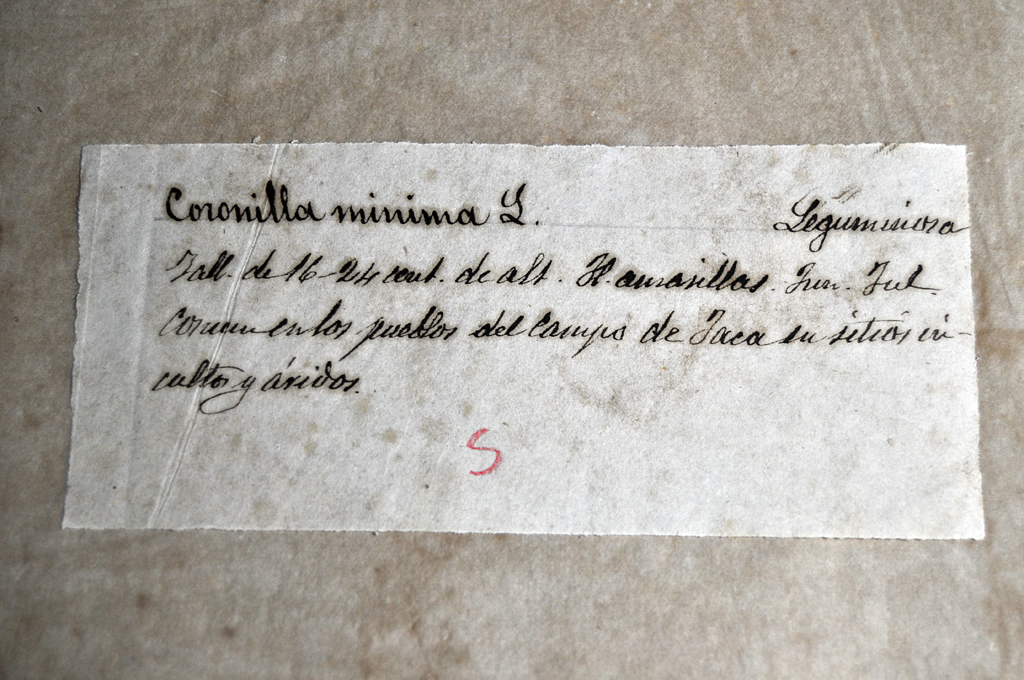 Coronilla minima L. Leguminosa
Tall. de 16-24 cent. de alt. Fl. amarillas. Jun. Jul.
Comun en los pueblos del Campo de Jaca en sitios in-
cultos y áridos.
S